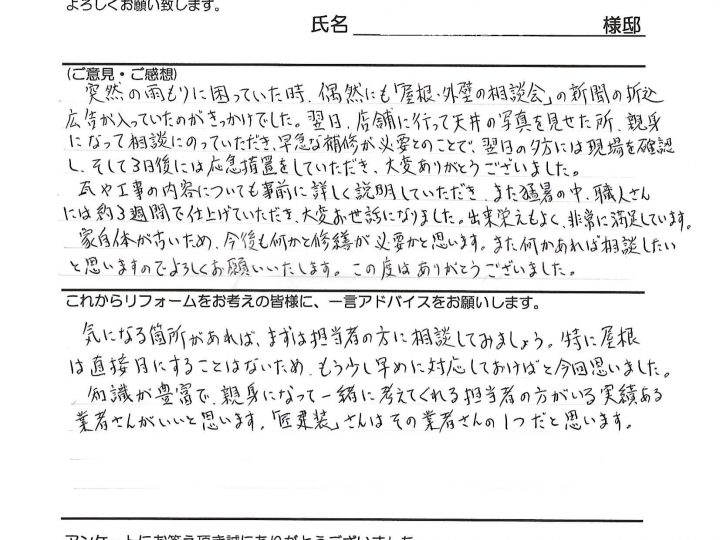 よろしくお願い致します。
氏名 様邸
(ご意見・ご感想)
突然の雨もりに困っていた時、偶然にも「屋根・外壁の相談会」の新聞の折込
広告が入っていたのがきっかけでした。翌日、店舗に行って天井の写真を見せた所、親身
になって相談にのっていただき、早急な補修が必要とのことで、翌日の夕方には現場を確認
し、そして3日後には応急措置をしていただき、大変ありがとうございました。
瓦や工事の内容についても事前に詳しく説明していただき、また猛暑の中、職人さん
には約3週間で仕上げていただき、大変お世話になりました。出来栄えもよく、非常に満足しています。
家自体が古いため、今後も何かと修繕が必要かと思います。また何かあれば相談したい
と思いますのでよろしくお願いいたします。この度はありがとうございました。
これからリフォームをお考えの皆様に、一言アドバイスをお願いします。
気になる箇所があれば、まずは担当者の方に相談してみましょう。特に屋根
は直接目にすることはないため、もう少し早めに対応しておけばと今回思いました。
知識が豊富で、親身になって一緒に考えてくれる担当者の方がいる実績ある
業者さんがいいと思います。「匠建装」さんはその業者さんの1つだと思います。
アンケートにお答え頂き誠にありがとうございました。